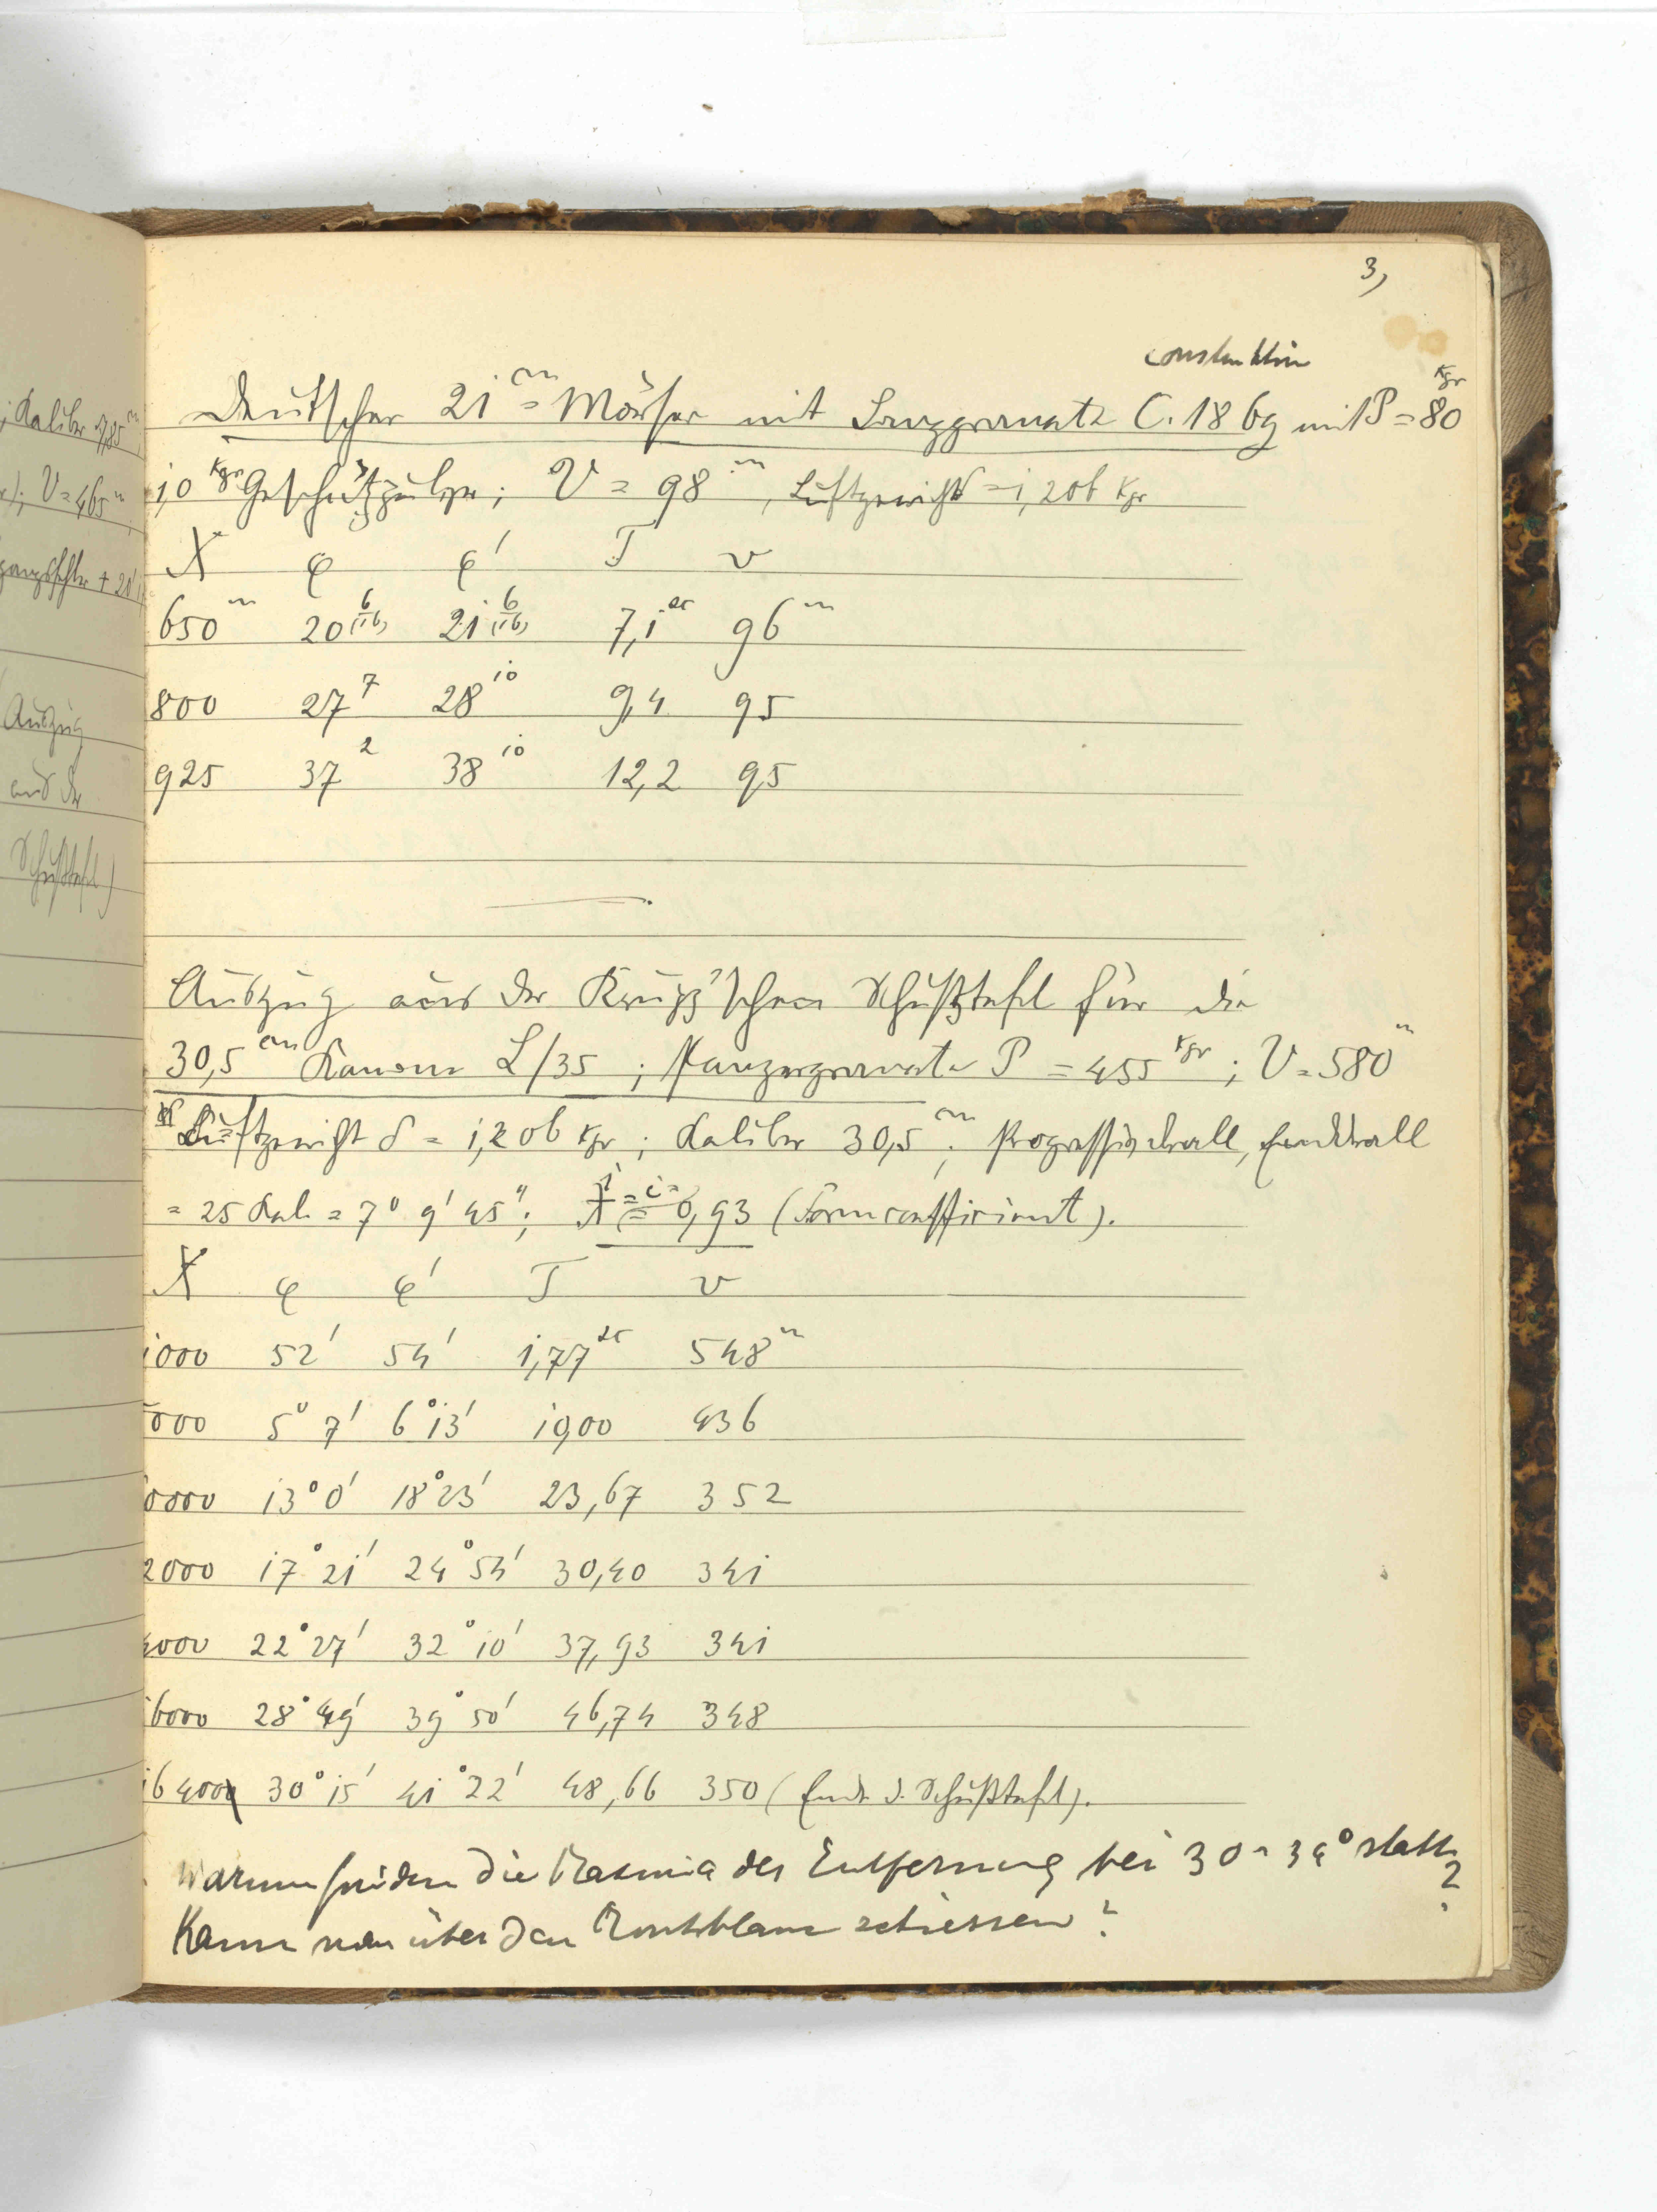 3,
Construktion
Deutscher 21 cm = Mörser mit Langgranate C. 1869 mit P = 80 Kgr
1,0 Kgr Geschützpulver; V = 98 m, Luftgewicht = 1,206 Kgr
X φ φ' T v
650 m 20 6/(16) 21 6/(16) 7,1 sec 96 m
800 27 7 28 10 9,4 95
925 37 2 38 10 12,2 95
Auszug aus der Krupp'schen Schußtafel für die
30,5 cm Kanone L/35; Panzergranate P = 455 Kgr; V = 580 m
Luftgewicht δ = 1,206 Kgr; Kaliber 30,5 cm; Progressivdrall, Enddrall
= 25 Kal. = 7° 9' 45"; i = 0,93 (Formcoefficient).
X φ φ' T v
1000 52' 54' 1,77 sec 548 m
5000 5° 7' 6° 13' 10,00 436
0000 13° 0' 18° 23' 23,67 352
2000 17° 21' 24° 54' 30,40 341
4000 22° 27' 32° 10' 37,93 341
16000 28° 49' 39° 50' 46,74 348
16400 30° 15' 41° 22' 48,66 350 (Ende d. Schußtafel).
Warum finden die Maxima der Entfernung bei 30-34° statt?
Kann man über den Montblanc schiessen?
; Kaliber
; V = 465 m
+ 20'
Auszug
aus der
Schußtafel)